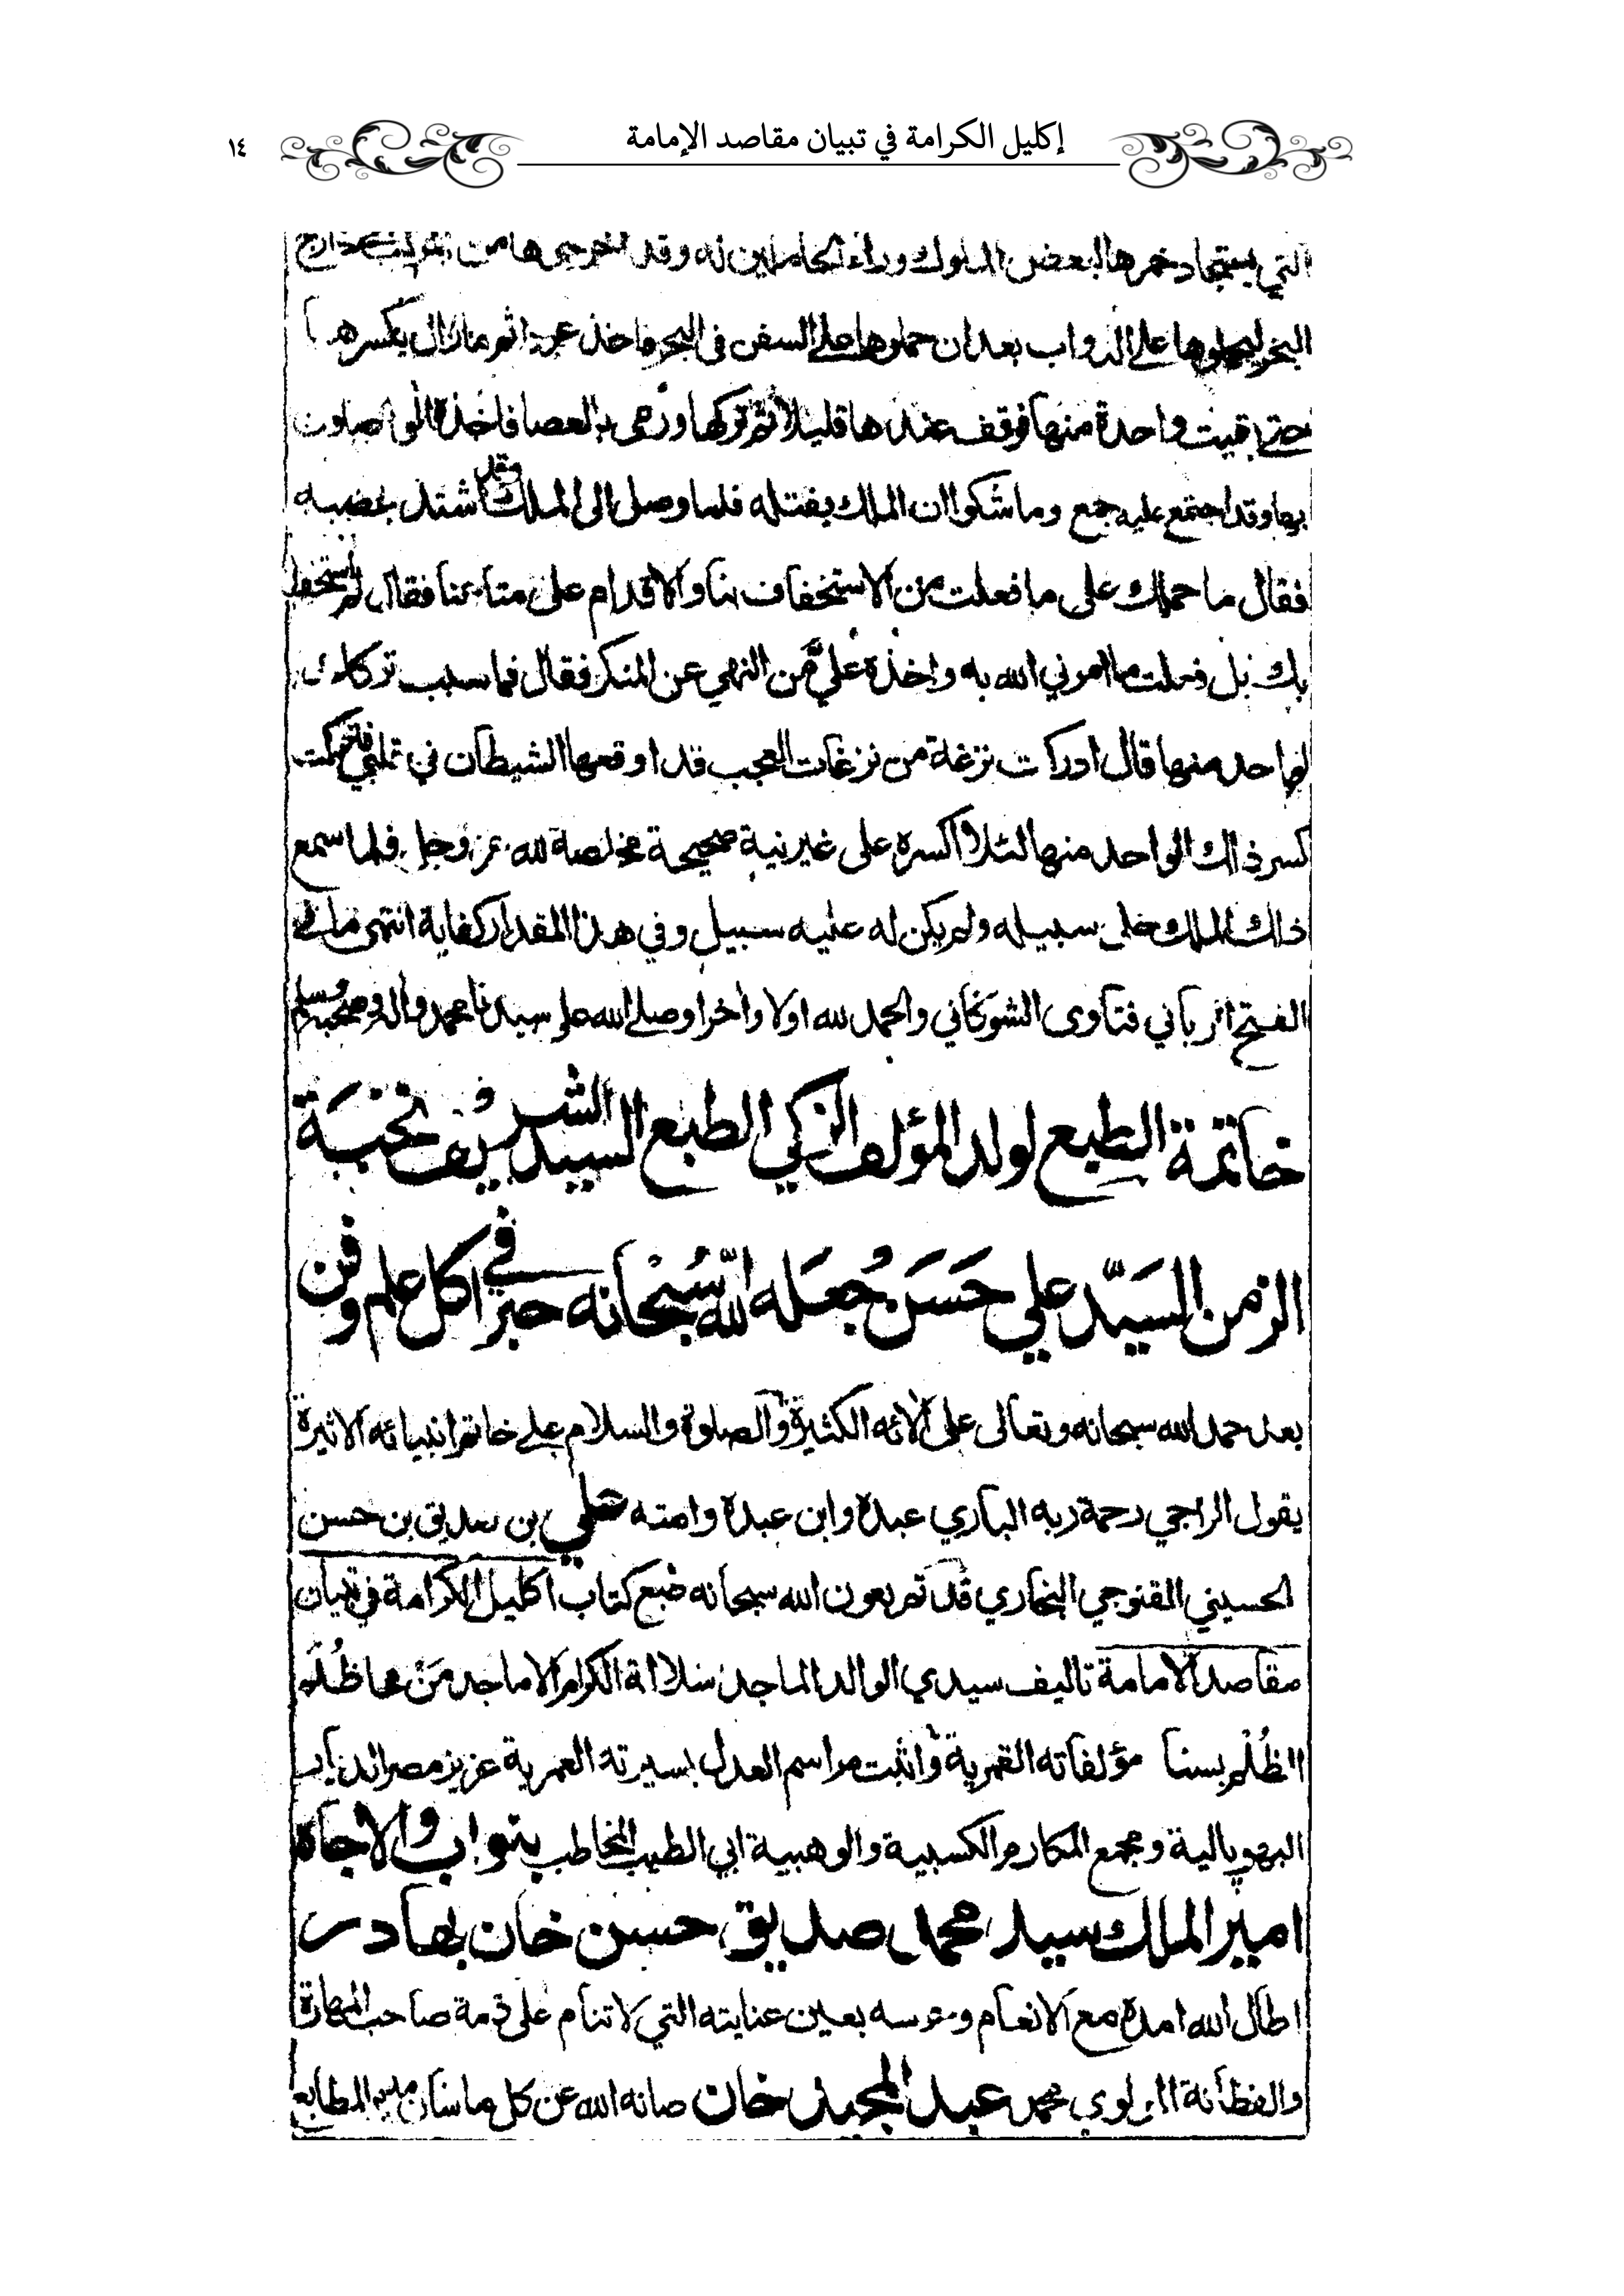 إكليل الكرامة في تبيان مقاصد الإمامة
١٤
التي يستجاد خمرها لبعض الملوك وراء الحاملين له وقد اخرجوها من
البحر ليحملوها على الدواب بعد ان حملوها على السفن في البحر فاخذ عودا ثم مازال يكسرها
حتى بقيت واحدة منها فوقف عندها قليلا ثم تركها ورمى بالعصا فاخذه الموصلون
بها وقد اجتمع عليه جمع وما شكوا ان الملك يقتله فلما وصل الى الملك وقد اشتد غضبه
فقال ما حملك على ما فعلت من الاستخفاف بنا والاقدام على متاعنا فقال لم استخف
بك بل فعلت ما امرني الله به واخذه علي من النهي عن المنكر فقال فما سبب تركك
لواحد منها قال ادركت نزغة من نزغات العجب قد اوقعها الشيطان في قلبي فتركت
كسر ذلك الواحد منها لئلا اكسره على غير نية صحيحة مخلصة لله عز وجل فلما سمع
ذلك الملك خلى سبيله ولم يكن له عليه سبيل وفي هذا المقدار كفاية انتهى ما في
الفتح الرباني فتاوى الشوكاني والحمد لله اولا واخرا وصلى الله على سيدنا محمد واله وصحبه وسلم
خاتمة الطبع لولد المؤلف الزكي الطبع السيد الشريف نخبة
الزمن السَيّد علي حَسَن جُعَله اللّه سُبْحانه حبرا في كل علم وفن
بعد حمد الله سبحانه وتعالى على آلائه الكثيرة والصلوة والسلام على خاتم انبيائه الاثيرة
يقول الراجي رحمة ربه الباري عبده وابن عبده وامته علي بن صديق بن حسن
الحسيني القنوجي البخاري قد تم بعون الله سبحانه طبع كتاب اكليل الكرامة في تبيان
مقاصد الامامة تاليف سيدي الوالد الماجد سلالة الكرام الاماجد مَنْ محا ظُلَم
الظُلْم بسنا مؤلفاته القمرية واثبت مراسم العدل بسيرته العمرية عزيز مصر
البهوپالية ومجمع المكارم الكسبية والوهبية ابي الطيب المخاطب بنواب والاجاه
امير الملك سيد محمد صديق حسن خان بهادر
اطال الله امده مع الانعام وحرسه بعين عنايته التي لا تنام على ذمة صاحب المهارة
والفطانة المولوي محمد عبد المجيد خان صانه الله عن كل ما شان المطابع